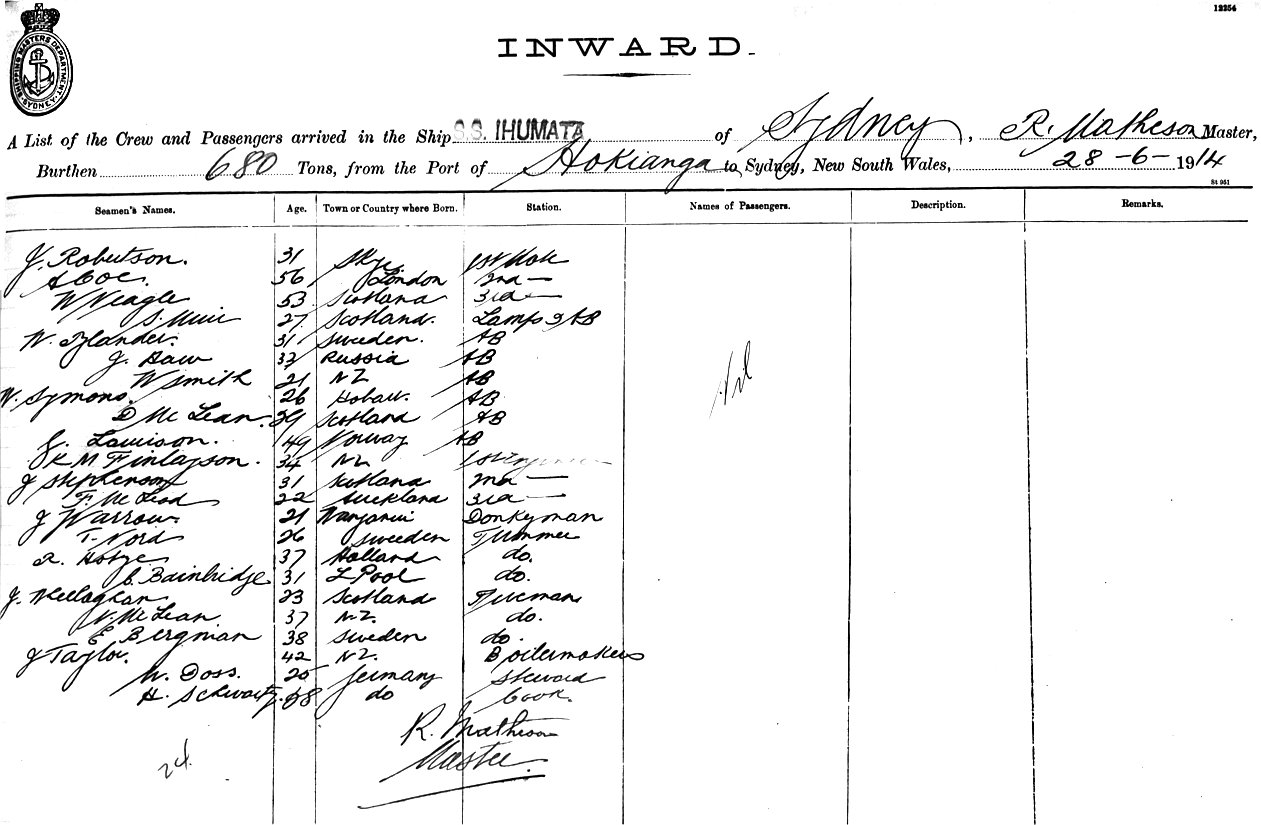 12254
SHIPPING MASTERS DEPARTMENT SYDNEY
INWARD.
A List of the Crew and Passengers arrived in the Ship S.S. IHUMATA of Sydney, R. Matheson Master,
Burthen 680 Tons, from the Port of Hokianga to Sydney, New South Wales, 28-6-1914
St 951
Seamen's Names. Age. Town or Country where Born. Station. Names of Passengers. Description. Remarks.
J. Robertson. 31 Skye. 1st Mate
A Coe. 56 London 2nd —
W Neagle 53 Scotland 3rd —
S. Muir 27 Scotland. Lamps & AB
W. 31 Sweden. AB
J. Haw Russia AB
W Smith 21 NZ AB
W. Symons. 26 Hobart. AB
D Mc Lean. 29 Scotland AB
Nil
Lawison. 49 Norway AB
K M Finlayson. 34 NZ 1st Engineer
J Stephenson 31 Scotland 2nd —
F. Mc Leod 22 Auckland 3rd —
J Warrow. 21 Donkyman
T. Nord 26 Sweden Trimmer
R. 37 Holland do.
C. Bainbridge 31 L Pool do.
J. Mellaghan 23 Scotland Fireman
N. Mc Lean 37 N.Z. do.
E Bergman 38 Sweden do.
J Taylor. 42 N.Z. Boilermakers
W. Doss. 25 Germany Steward
H. Schwartz. do Cook.
R. Matheson
Master.
24.